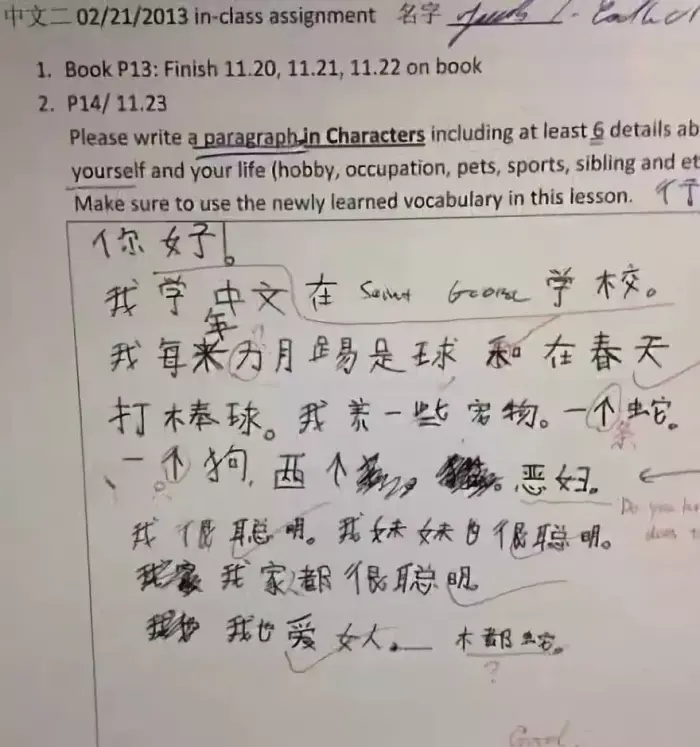 中文二 02/21/2013 in-class assignment 名字
1. Book P13: Finish 11.20, 11.21, 11.22 on book
2. P14/ 11.23
Please write a paragraph in Characters including at least 6 details ab
yourself and your life (hobby, occupation, pets, sports, sibling and et
Make sure to use the newly learned vocabulary in this lesson.
你好!。
我学中文在 Saint George 学校。
年
我每来为月踢足球和在春天
打棒球。我养一些宠物。一个蛇。
条
一个狗, 两个
我很聪明。我妹妹也很聪明。
我家都很聪明。
我也爱女人。
?
Good